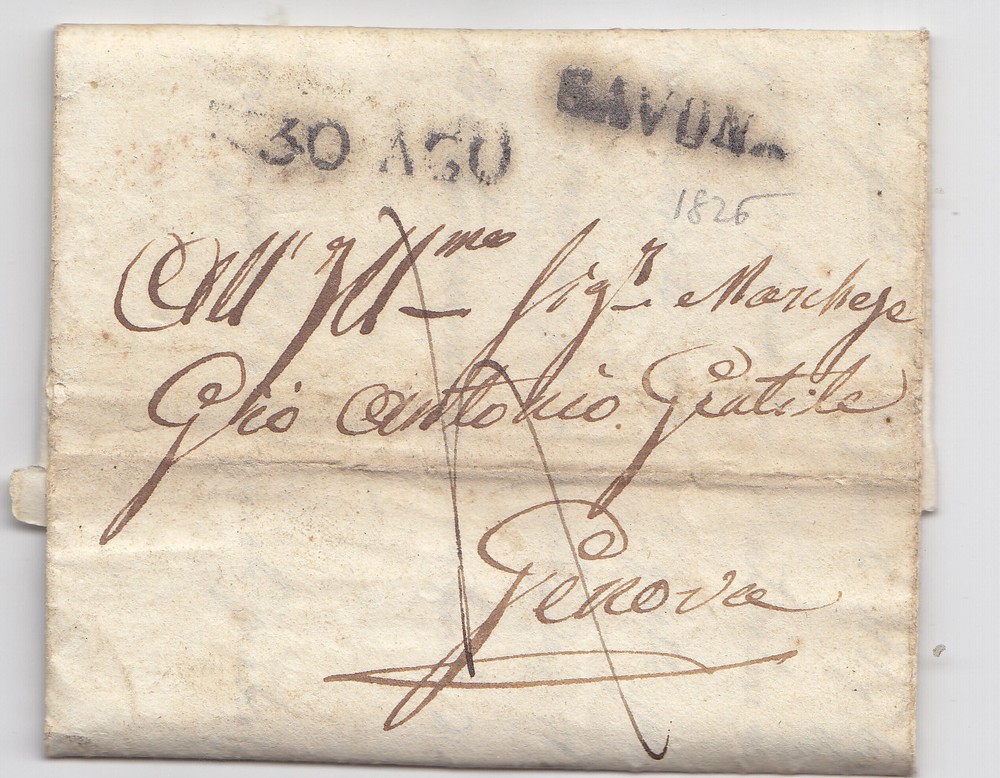 30 AGO
SAVONA
1826
All' Ill.mo Sig.r Marchese
Gio Antonio Gratile
Genova